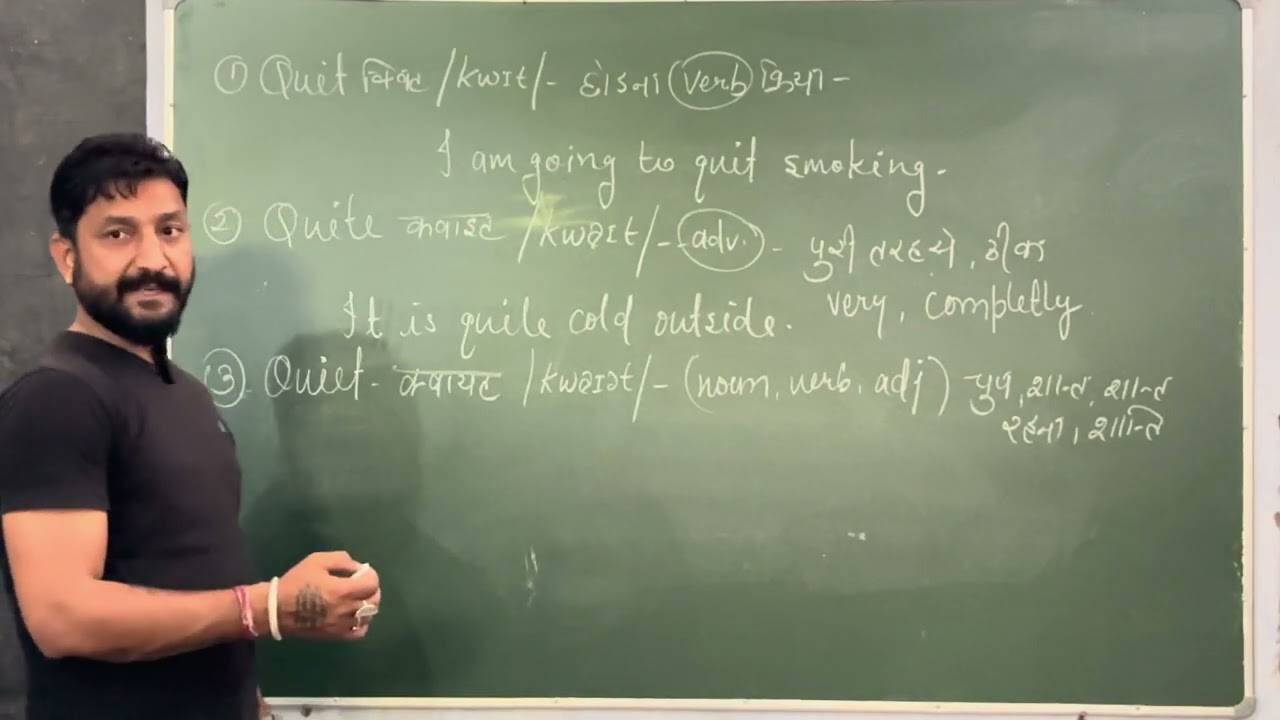 ① Quit क्विट /kwɪt/- छोडना (verb) क्रिया -
I am going to quit smoking.
② Quite कवाइट /kwaɪt/-- (adv.) - पुरी तरह से, ठीक
very, completly
It is quite cold outside.
③. Quiet- कवायट /kwaɪət/- (noun, verb, adj) चुप, शान्त, शान्त
रहना, शान्ति